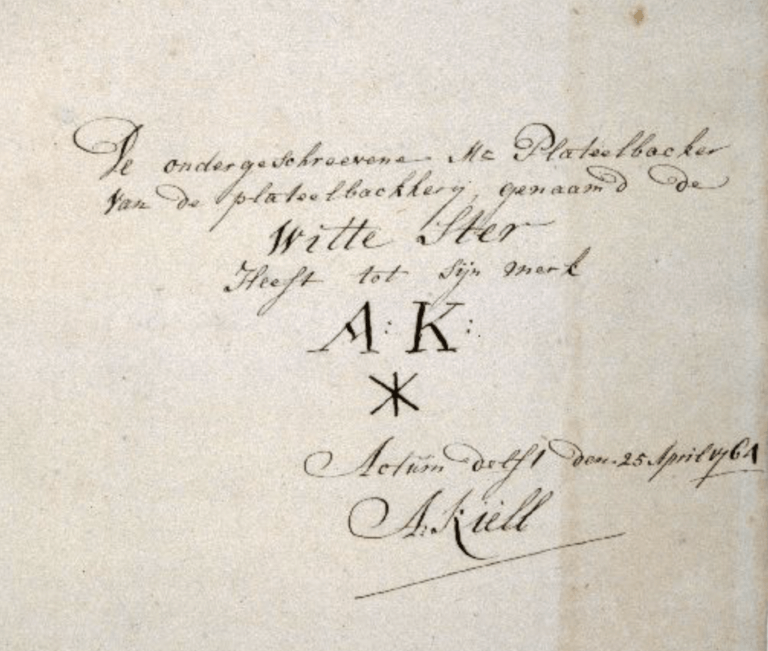 De ondergeschreevene Mr Plateelbacker
van de plateelbackkerij, genaamd de
Witte Ster
Heeft tot sijn merk
A: K:
*
Actum delft den 25 April 1764
A: Kiell